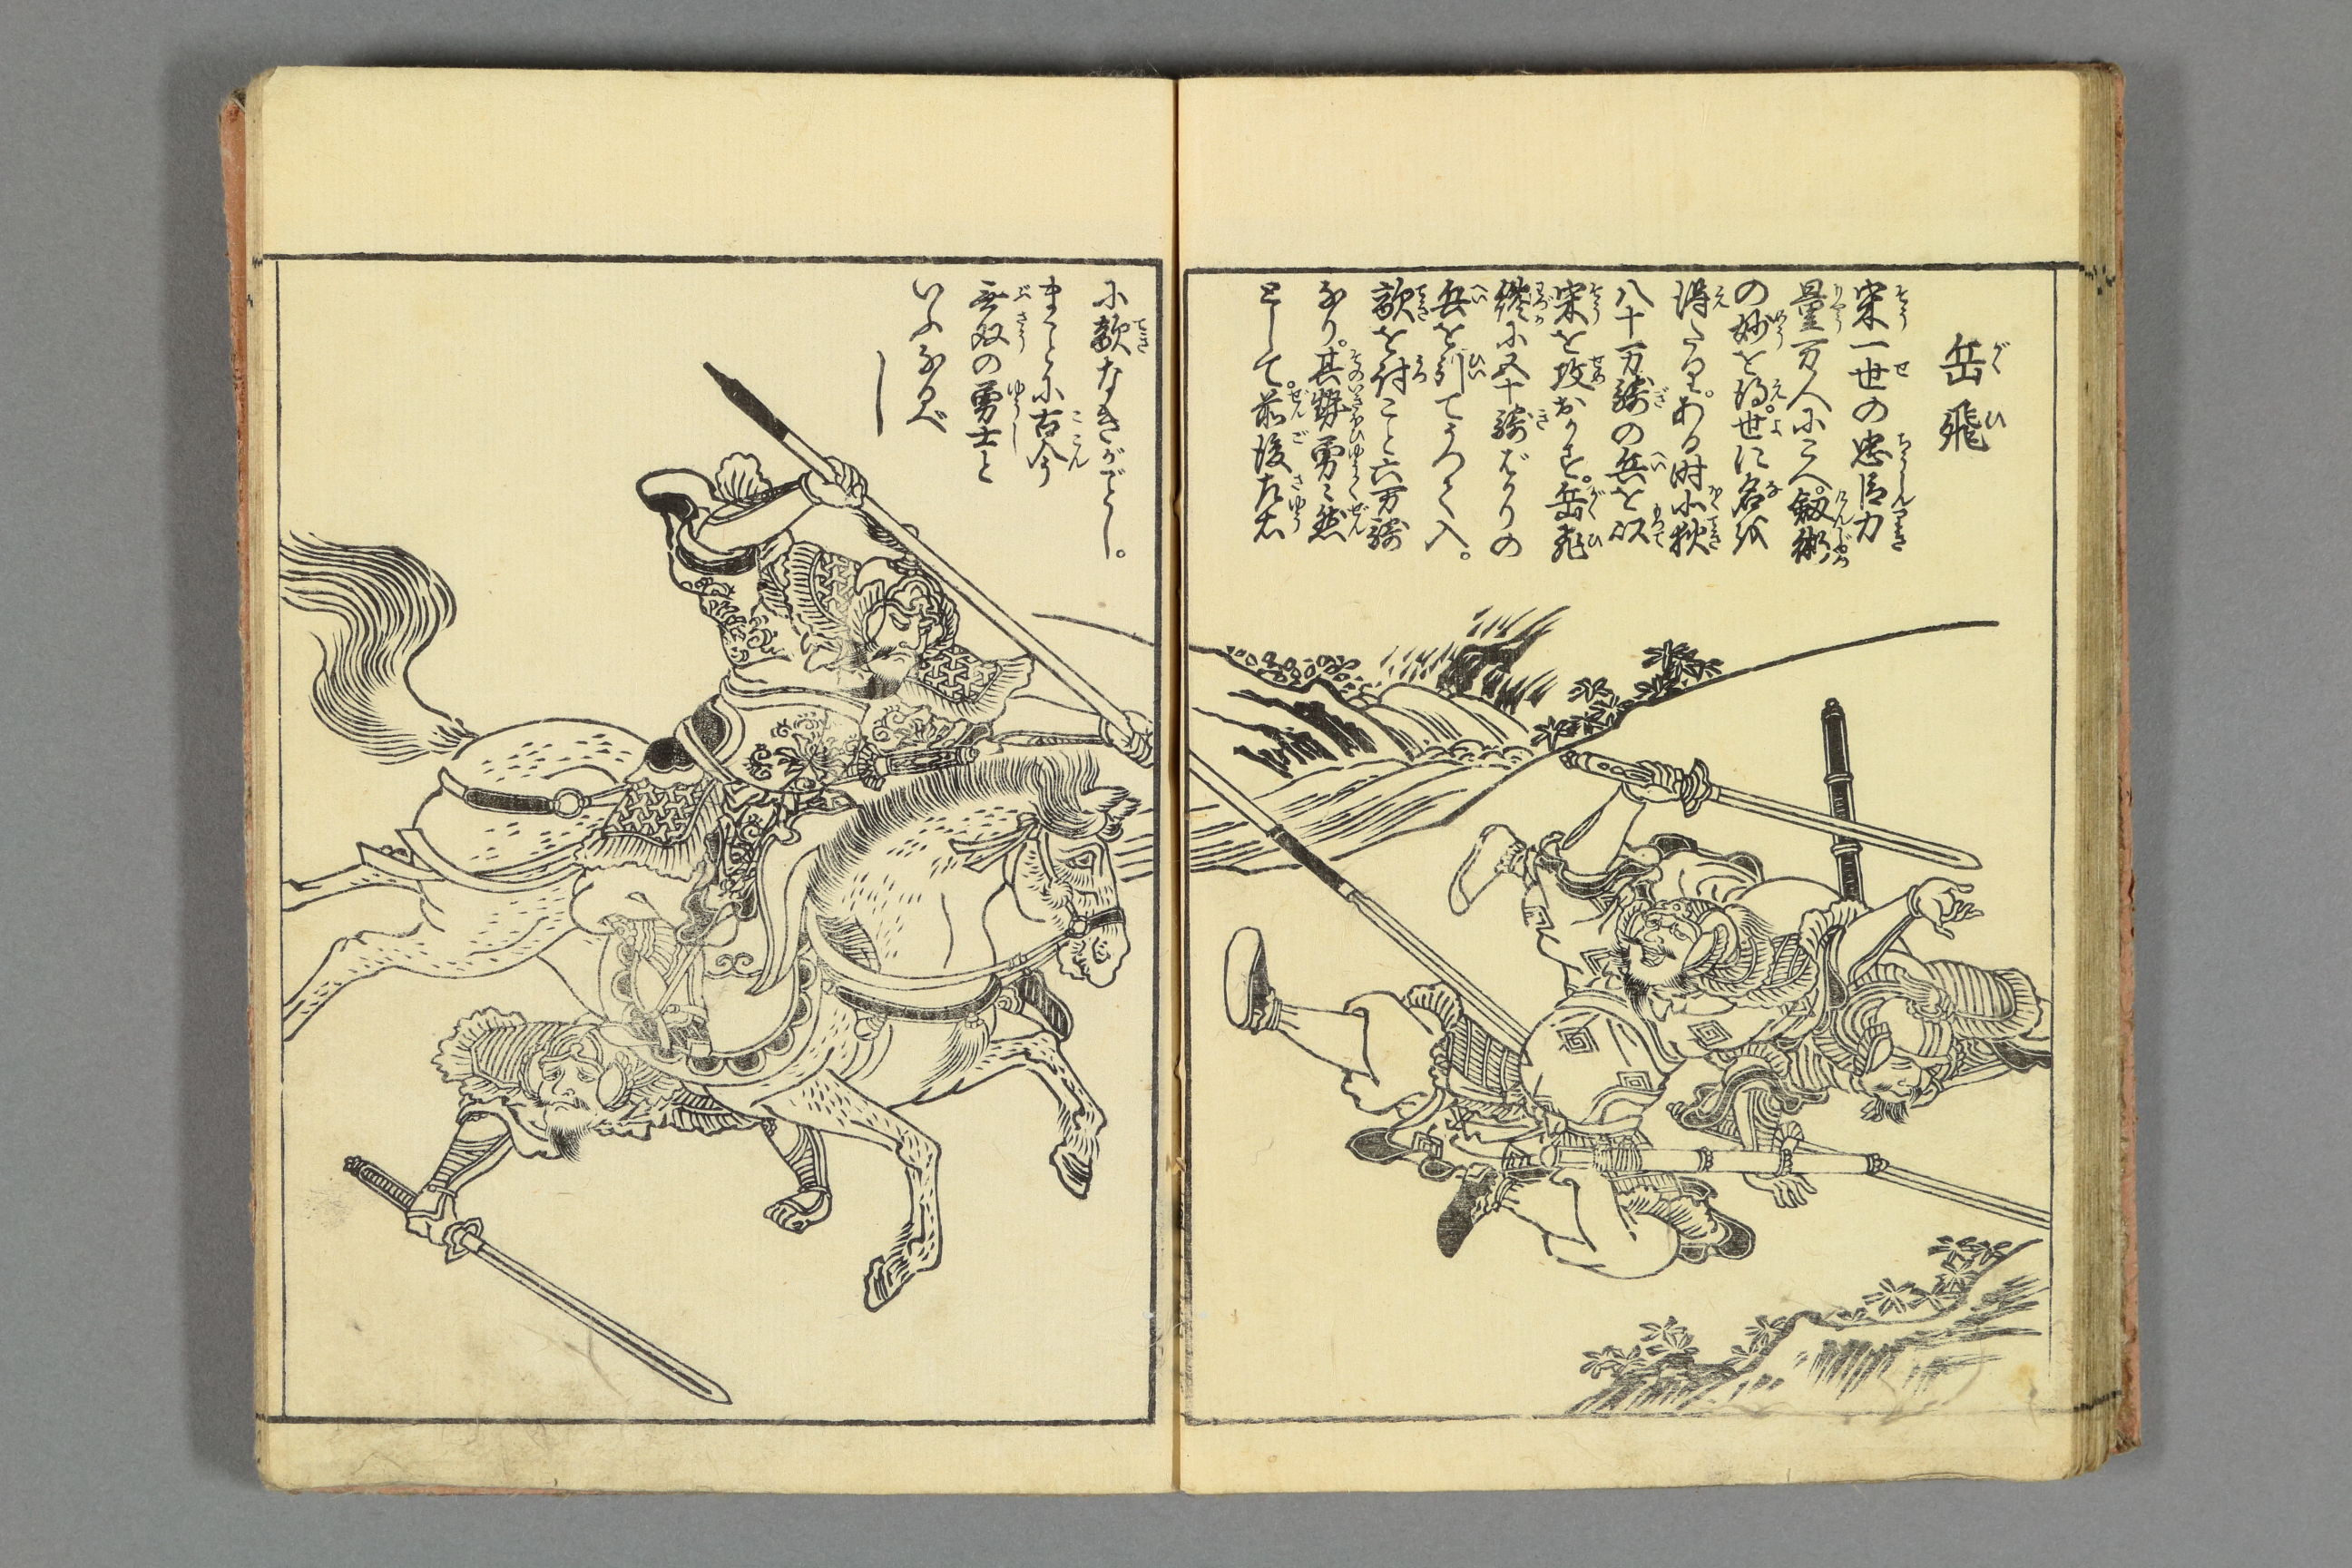 岳飛
宋一世の忠臣力
量万人にこへ。剱術
の妙を得。世に名を
得たり。ある時小狄
八十万騎の兵を以
宋を攻おかす。岳飛
纔に五十騎ばかりの
兵を引てうつて入。
敵を討こと六万騎
なり。其勢勇々然
として。前後左右
に敵なきがごとし。
まことに古今
無双の勇士と
いふなるべ
し